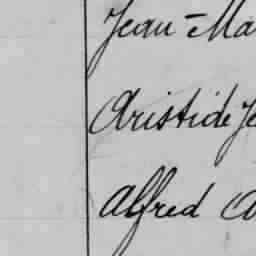 Jean-Ma
Aristide Je
Alfred A